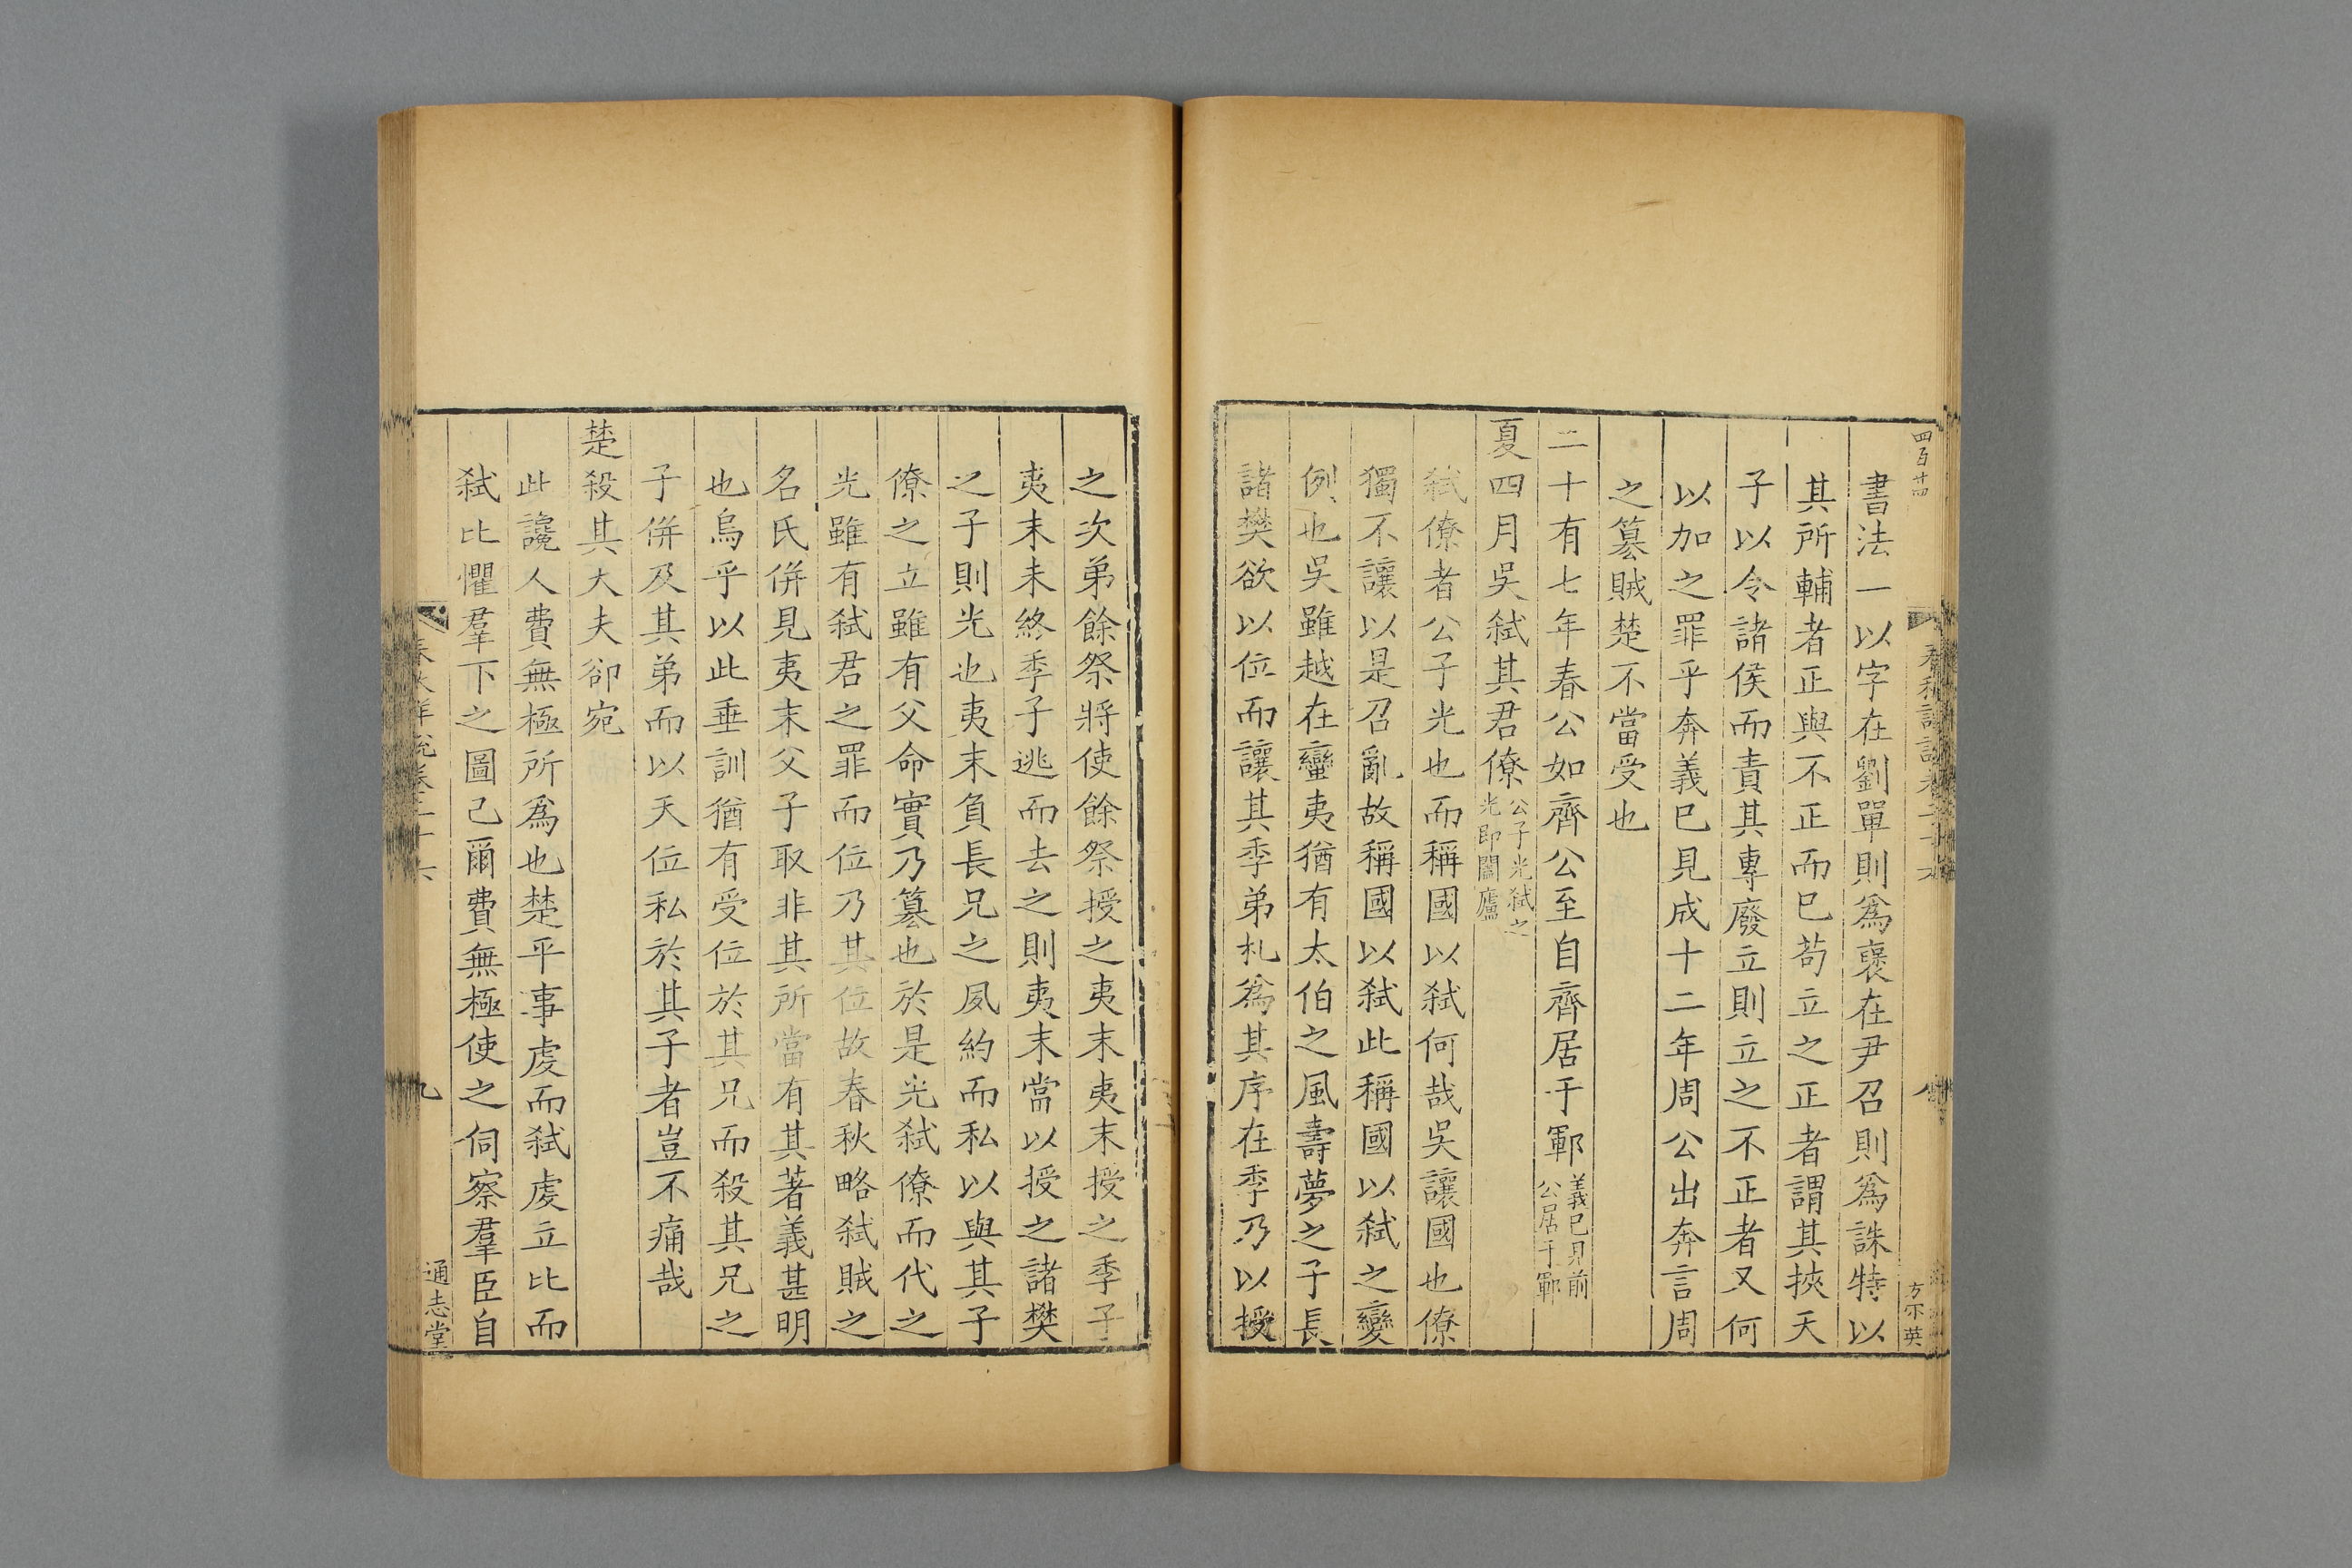 四百廿四
書法一以字在劉單則爲褒在尹召則爲誅特以
其所輔者正與不正而已苟立之正者謂其挾天
子以令諸侯而責其專廢立則立之不正者又何
以加之罪乎奔義已見成十二年周公出奔言周
之篡賊楚不當受也
二十有七年春公如齊公至自齊居于鄆義已見前公居于鄆
夏四月吳弑其君僚公子光弑之光即闔廬
弑僚者公子光也而稱國以弑何哉吳讓國也僚
獨不讓以是召亂故稱國以弑此稱國以弑之變
例也吳雖越在蠻夷猶有太伯之風壽夢之子長
諸樊欲以位而讓其季弟札爲其序在季乃以授
方不英
之次弟餘祭將使餘祭授之夷末夷末授之季子
夷末未終季子逃而去之則夷末當以授之諸樊
之子則光也夷末負長兄之夙約而私以與其子
僚之立雖有父命實乃篡也於是光弑僚而代之
光雖有弑君之罪而位乃其位故春秋略弑賊之
名氏併見夷末父子取非其所當有其著義甚明
也烏乎以此垂訓猶有受位於其兄而殺其兄之
子併及其弟而以天位私於其子者豈不痛哉
楚殺其大夫卻宛
此讒人費無極所爲也楚平事虔而弑虔立比而
弑比懼羣下之圖己爾費無極使之伺察羣臣自
春秋詳說卷二十六
九
通志堂